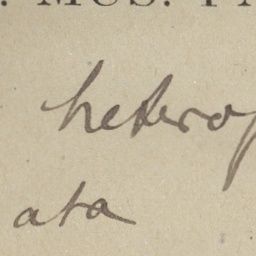 . MUS. PA
heterop
ata